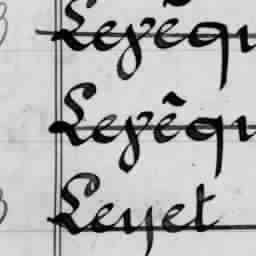 Levêqu
Levêqu
Leyet